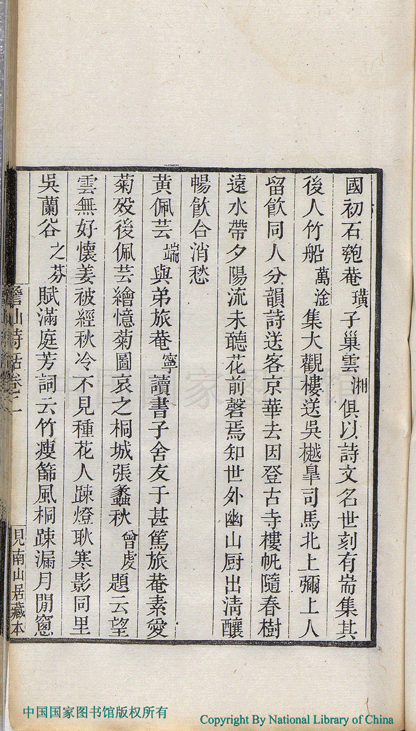 國初石瓠菴璜子巢雲湘俱以詩文名世刻有耑集其
後人竹船萬淦集大觀樓送吳樾臯司馬北上彌上人
留飲同人分韻詩送客京華去因登古寺樓帆隨春樹
遠水帶夕陽流未聽花前磬焉知世外幽山厨出淸釀
暢飲合消愁
黃佩芸端與弟旅菴寧讀書子舍友于甚篤旅菴素愛
菊歿後佩芸繪憶菊圖哀之桐城張蠡秋曾虔題云望
雲無好懷姜被經秋冷不見種花人疎燈耿寒影同里
吳蘭谷之芬賦滿庭芳詞云竹瘦篩風桐疎漏月閒窻
詩話卷二
見南山居藏本
中国国家图书馆版权所有
Copyright By National Library of China